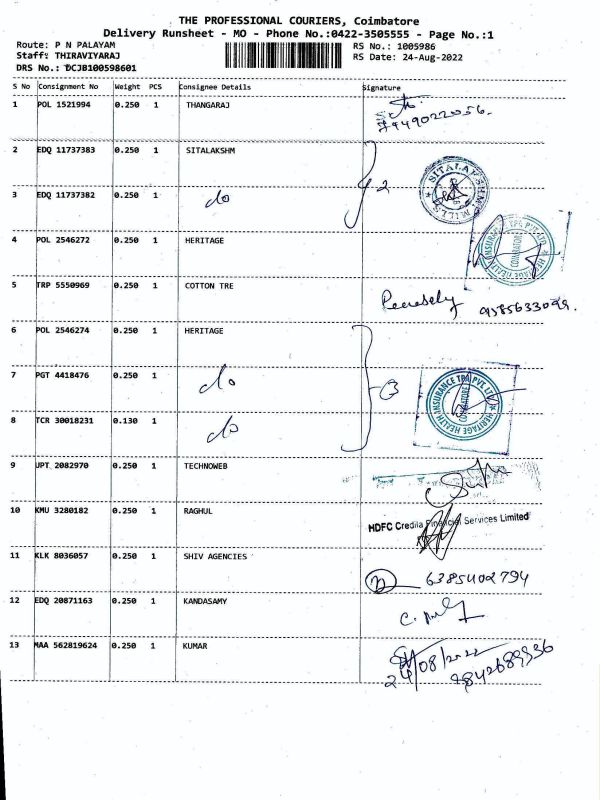 THE PROFESSIONAL COURIERS, Coimbatore
Delivery Runsheet - MO - Phone No.:0422-3505555 - Page No.:1
Route: P N PALAYAM
RS No.: 1005986
Staff: THIRAVIYARAJ
RS Date: 24-Aug-2022
DRS No.: DCJB100598601
S No Consignment No Weight PCS Consignee Details Signature
1 POL 1521994 0.250 1 THANGARAJ
9449022056.
2 EDQ 11737383 0.250 1 SITALAKSHM
2
SITALAKSHMI MILLS
3 EDQ 11737382 0.250 1 do
4 POL 2546272 0.250 1 HERITAGE
HERITAGE HEALTH INSURANCE TPA PVT. LTD.
COIMBATORE
5 TRP 5550969 0.250 1 COTTON TRE
9585633099.
6 POL 2546274 0.250 1 HERITAGE
7 PGT 4418476 0.250 1 do
3
HERITAGE HEALTH INSURANCE TPA PVT. LTD.
COIMBATORE
8 TCR 30018231 0.130 1 do
9 JPT 2082970 0.250 1 TECHNOWEB
10 KMU 3280182 0.250 1 RAGHUL
HDFC Credila Financial Services Limited
11 KLK 8036057 0.250 1 SHIV AGENCIES
6385402794
12 EDQ 20871163 0.250 1 KANDASAMY
13 MAA 562819624 0.250 1 KUMAR
24/08/2022
9842689336